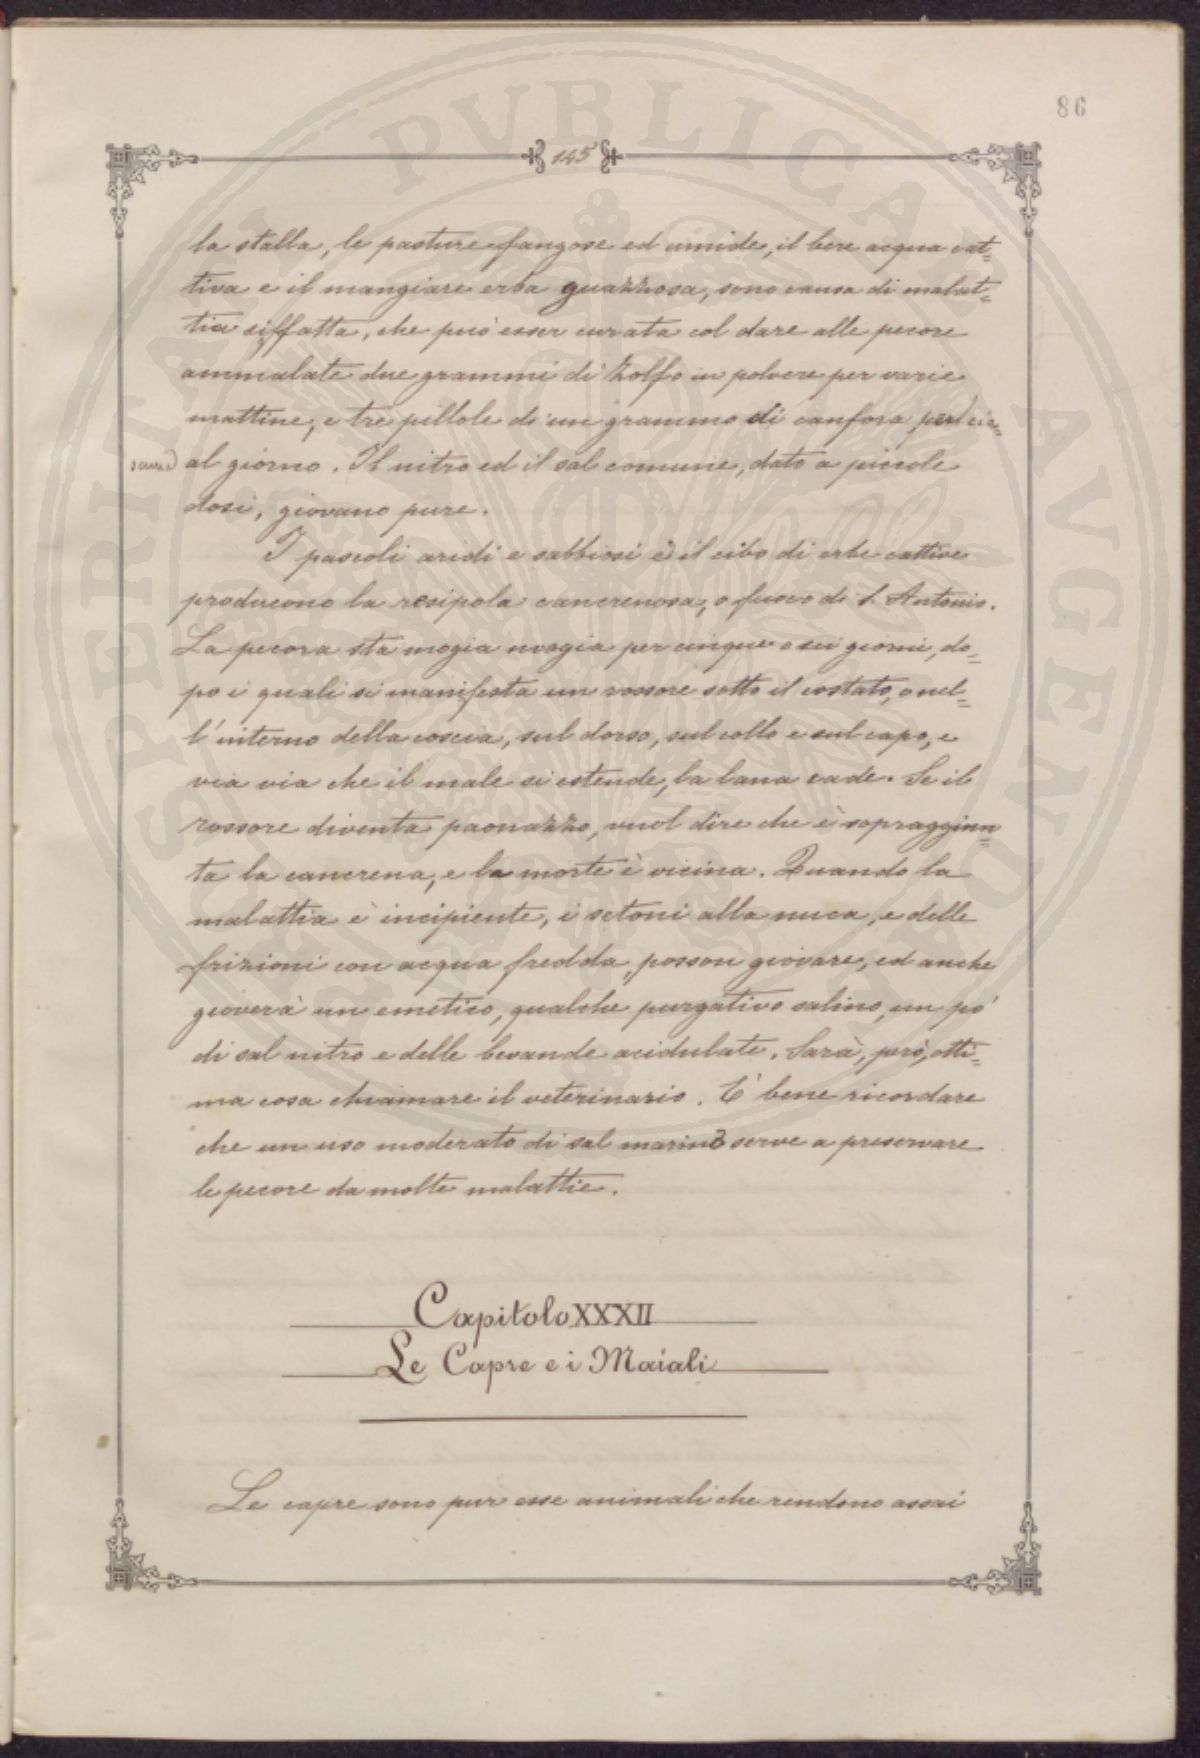 86
145
la stalla, le pasture fangose ed umide, il bere acqua cat=
tiva e il mangiare erba guazzosa, sono causa di malat=
tia siffatta, che può esser curata col dare alle pecore
ammalate due grammi di zolfo in polvere per varie
mattine, e tre pillole di un grammo di canfora per cia=
scuna al giorno. Il nitro ed il sal comune, dato a piccole
dosi, giovano pure.
I pascoli aridi e sabbiosi e il cibo di erbe cattive
producono la resipola cancrenosa, o fuoco di S. Antonio.
La pecora sta mogia mogia per cinque o sei giorni, do=
po i quali si manifesta un rossore sotto il costato, o nel=
l'interno della coscia, sul dorso, sul collo e sul capo, e
via via che il male si estende, la lana cade. Se il
rossore diventa paonazzo, vuol dire che è sopraggiun=
ta la cancrena, e la morte è vicina. Quando la
malattia è incipiente, i setoni alla nuca, e delle
frizioni con acqua fredda, posson giovare, ed anche
gioverà un emetico, qualche purgativo salino, un po'
di sal nitro e delle bevande acidulate. Sarà, però, otti=
ma cosa chiamare il veterinario. E' bene ricordare
che un uso moderato di sal marino serve a preservare
le pecore da molte malattie.
Capitolo XXXII
Le Capre e i Maiali
Le capre sono pur esse animali che rendono assai